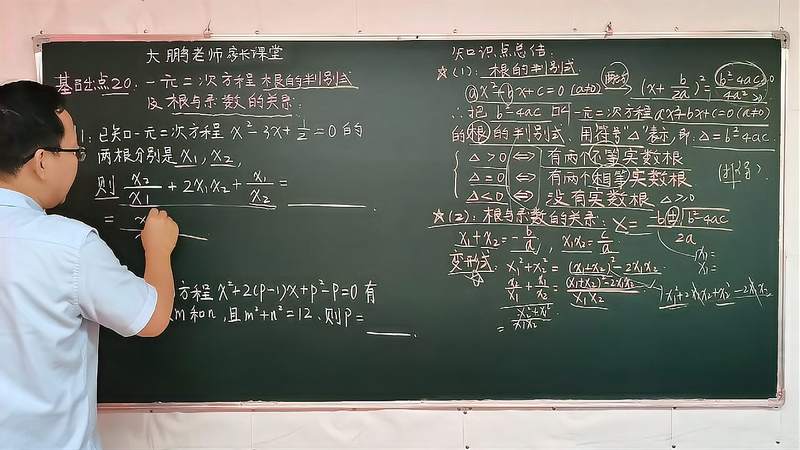 大鹏老师家长课堂
基础点20:一元二次方程根的判别式
及根与系数的关系:
1:已知一元二次方程 x²-3x+1/2=0的
两根分别是x₁,x₂,
则 x₂/x₁+2x₁x₂+x₁/x₂=
=
方程x²+2(p-1)x+p²-p=0有
m和n,且m²+n²=12,则p=
知识点总结:
☆(1):根的判别式
ax²+bx+c=0(a≠0) (x+b/2a)²=b²-4ac/4a²
∴把b²-4ac叫一元二次方程ax²+bx+c=0(a≠0)
的根的判别式、用符号"△"表示,即:△=b²-4ac
△>0⇔有两个不等实数根
△=0⇔有两个相等实数根
△<0⇔没有实数根 △≥0
☆(2):根与系数的关系: x=-b±√b²-4ac/2a
x₁+x₂=-b/a,x₁x₂=c/a
x₁=
x₁=
变形式:x₁²+x₂²=(x₁+x₂)²-2x₁x₂
x₂/x₁+x₁/x₂=(x₁+x₂)²-2x₁x₂/x₁x₂
x₁²+2x₁x₂+x₂²-2x₁x₂
=x₂²+x₁²/x₁x₂